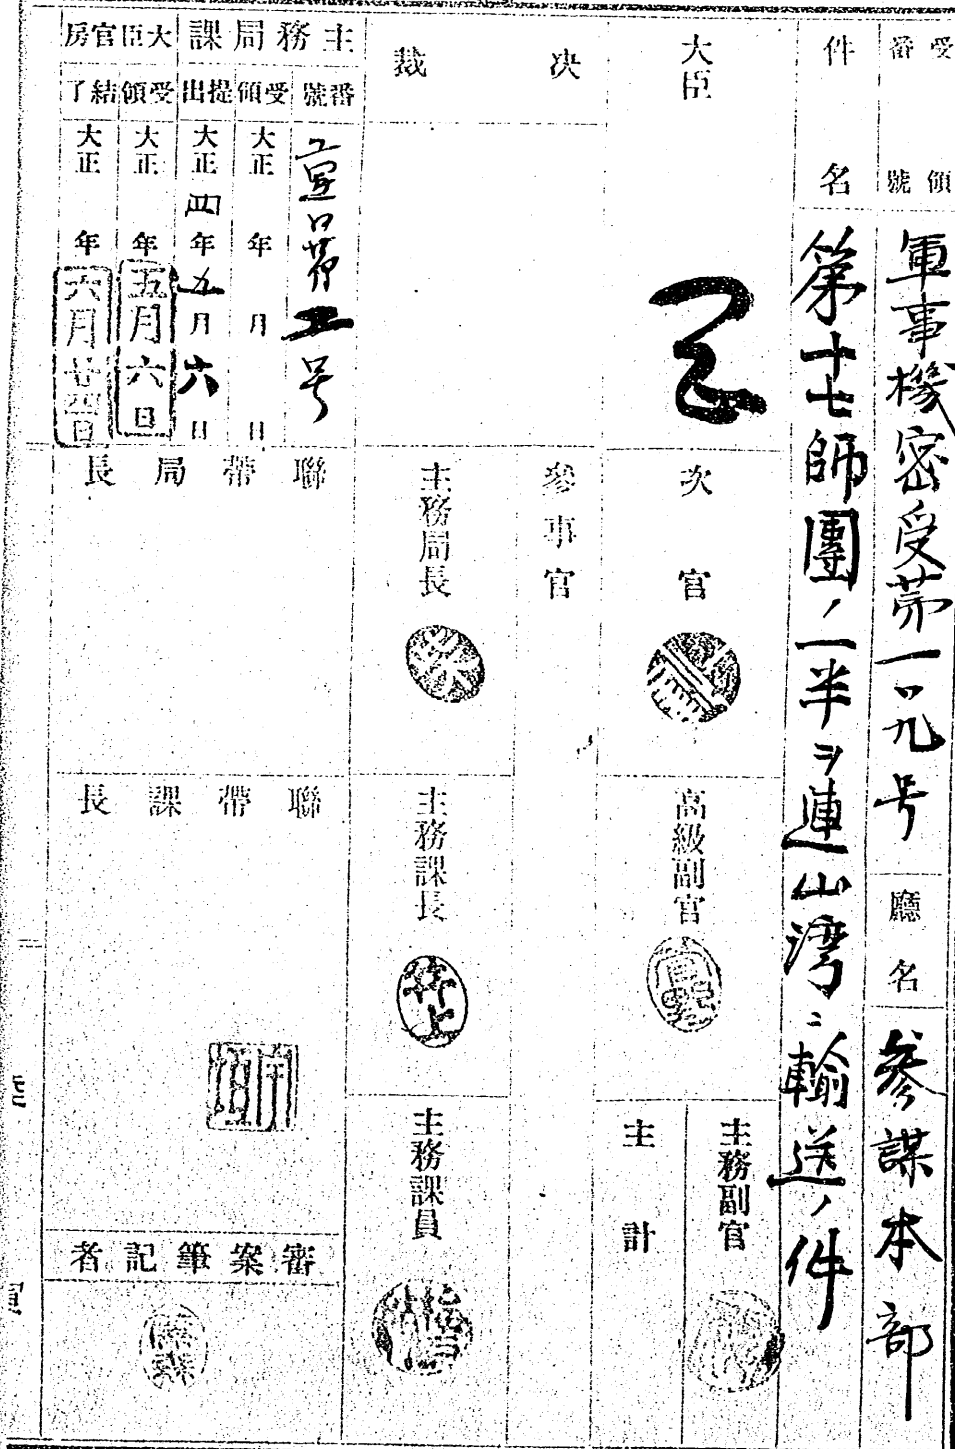 受領番號
軍事機密受第一〇九号
廳名
參謀本部
件名
第十七師團ノ一半ヲ連山湾ニ輸送ノ件
大臣
次官
高級副官
主務副官
主計
決裁
參事官
主務局長
主務課長
井上
主務課員
主務局課
番號
受領
大正 年 月 日
提出
大正四年五月六日
大臣官房
受領
大正 年
五月六日
結了
大正 年
六月廿四日
聯帶局長
聯帶課長
審案筆記者